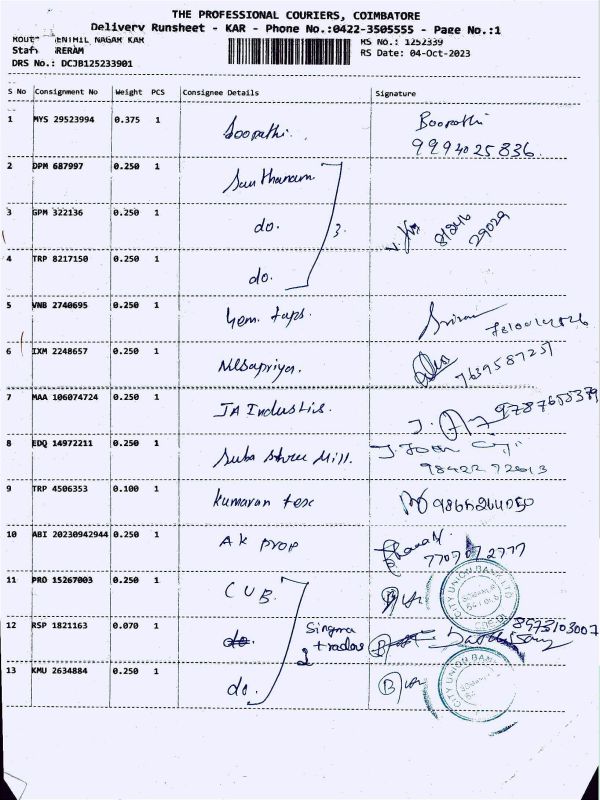 THE PROFESSIONAL COURIERS, COIMBATORE
Delivery Runsheet - KAR - Phone No.:0422-3505555 - Page No.:1
NAGAR KAR
RS No.: 1252339
RS Date: 04-Oct-2023
DRS No.: DCJB125233901
S No Consignment No Weight PCS Consignee Details Signature
1 MYS 29523994 0.375 1 Boopathi. Boopathi
9994025836.
2 DPM 687997 0.250 1 Santhanam
3 GPM 322136 0.250 1 do. 3. 81246
29029
4 TRP 8217150 0.250 1 do.
5 VNB 2740695 0.250 1 Gem. taps.
6 IXM 2248657 0.250 1 7639587257
7 MAA 106074724 0.250 1 JA Industis. J.
8 EDQ 14972211 0.250 1 Suba Shree Mill.
9 TRP 4506353 0.100 1 Kumaran tex
10 ABI 20230942944 0.250 1 AK prop
11 PRO 15267003 0.250 1 CUB. B
CITY UNION BANK LTD
12 RSP 1821163 0.070 1 do. Singma 8973103007
2 trades
13 KMU 2634884 0.250 1 do. B
CITY UNION BANK